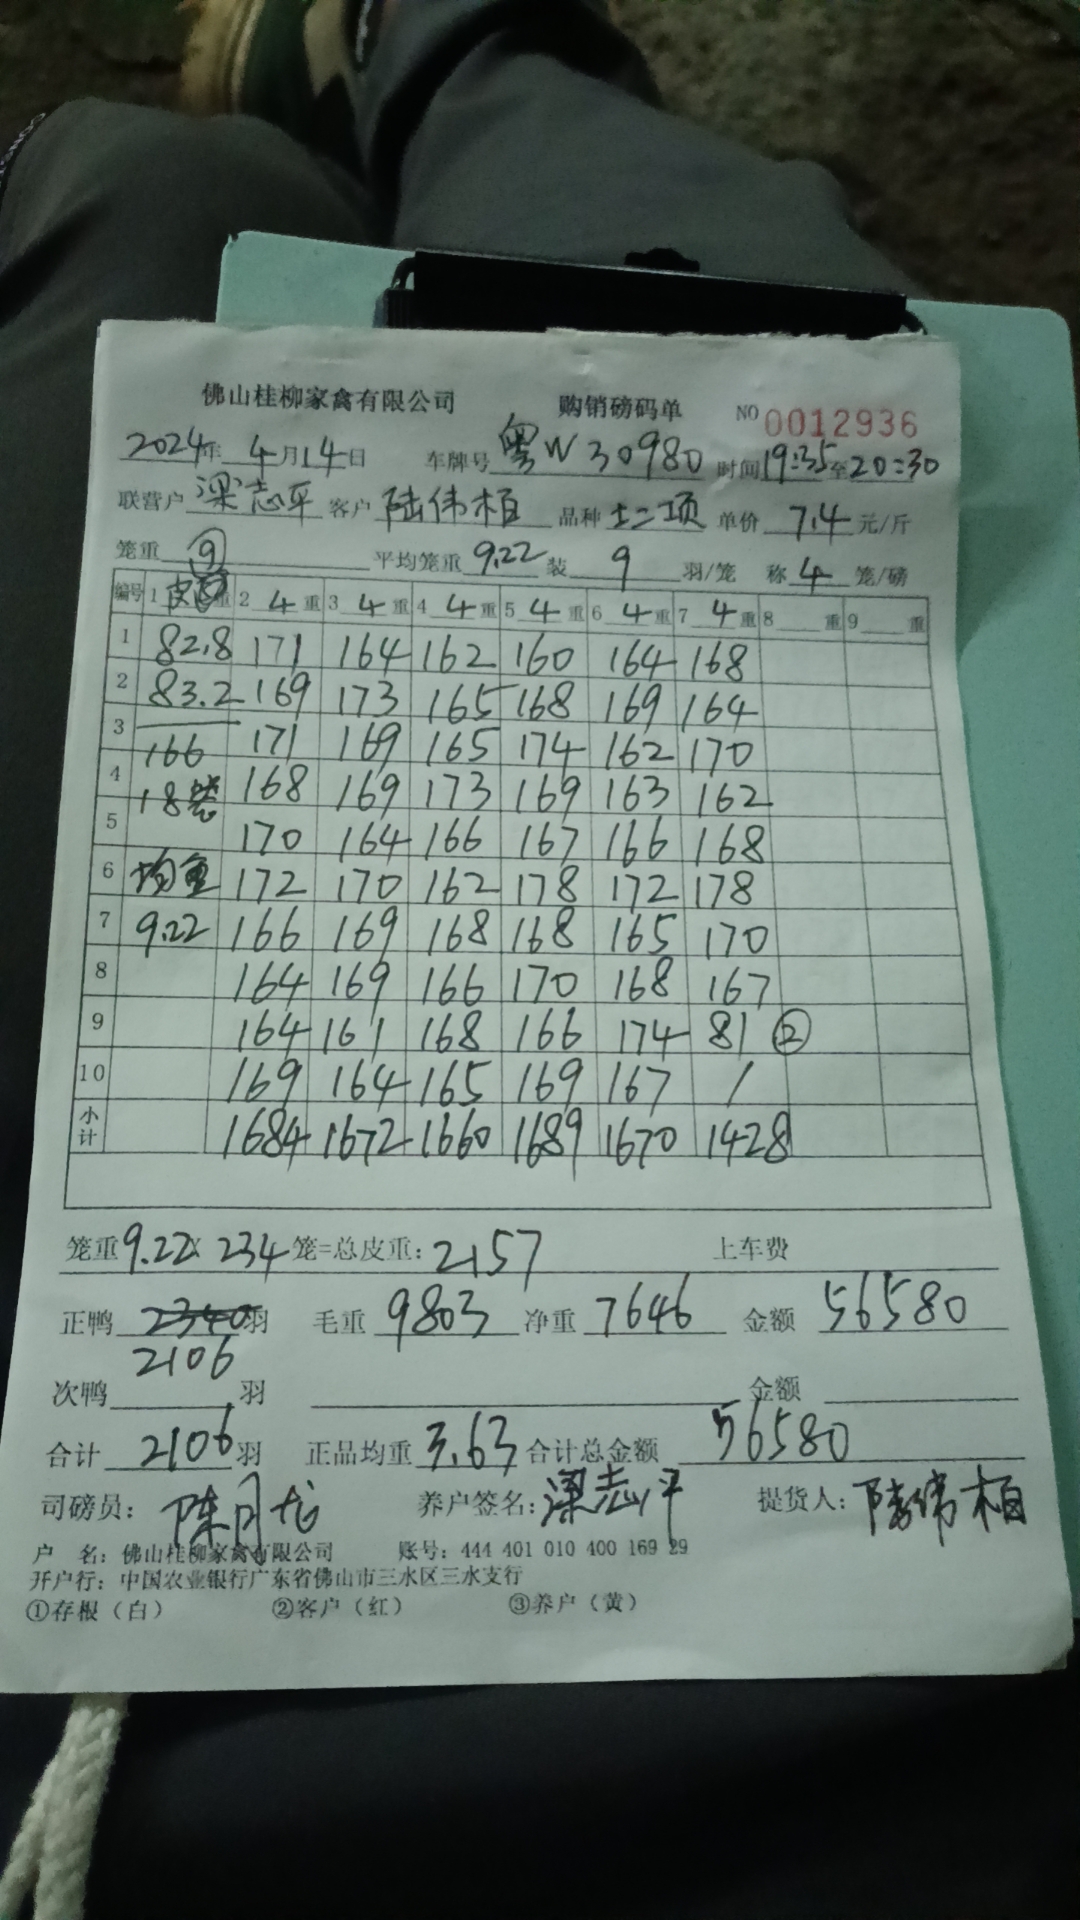 佛山桂柳家禽有限公司 购销磅码单 NO 0012936
2024年 4月14日 车牌号 粤W30980 时间19:35至20:30
联营户 梁志平 客户 陆伟柏 品种 土二项 单价 7.4 元/斤
笼重 ⑨ 平均笼重 9.22 装 9 羽/笼 称 4 笼/磅
编号 1 皮 重 2 4 重 3 4 重 4 4 重 5 4 重 6 4 重 7 4 重 8 重 9 重
1 82.8 171 164 162 160 164 168
2 83.2 169 173 165 168 169 164
3 166 171 169 165 174 162 170
4 18笼 168 169 173 169 163 162
5 170 164 166 167 166 168
6 均重 172 170 162 178 172 178
7 9.22 166 169 168 168 165 170
8 164 169 166 170 168 167
9 164 161 168 166 174 81 ②
10 169 164 165 169 167 /
小计 1684 1672 1660 1689 1670 1428
笼重 9.22× 234 笼=总皮重: 2157 上车费
正鸭 2340 羽 毛重 9803 净重 7646 金额 56580
2106
次鸭 羽 金额
合计 2106 羽 正品均重 3.63 合计总金额 56580
司磅员: 陈月龙 养户签名: 梁志平 提货人: 陆伟柏
户 名: 佛山桂柳家禽有限公司 账号: 444 401 010 400 169 29
开户行: 中国农业银行广东省佛山市三水区三水支行
①存根(白) ②客户(红) ③养户(黄)